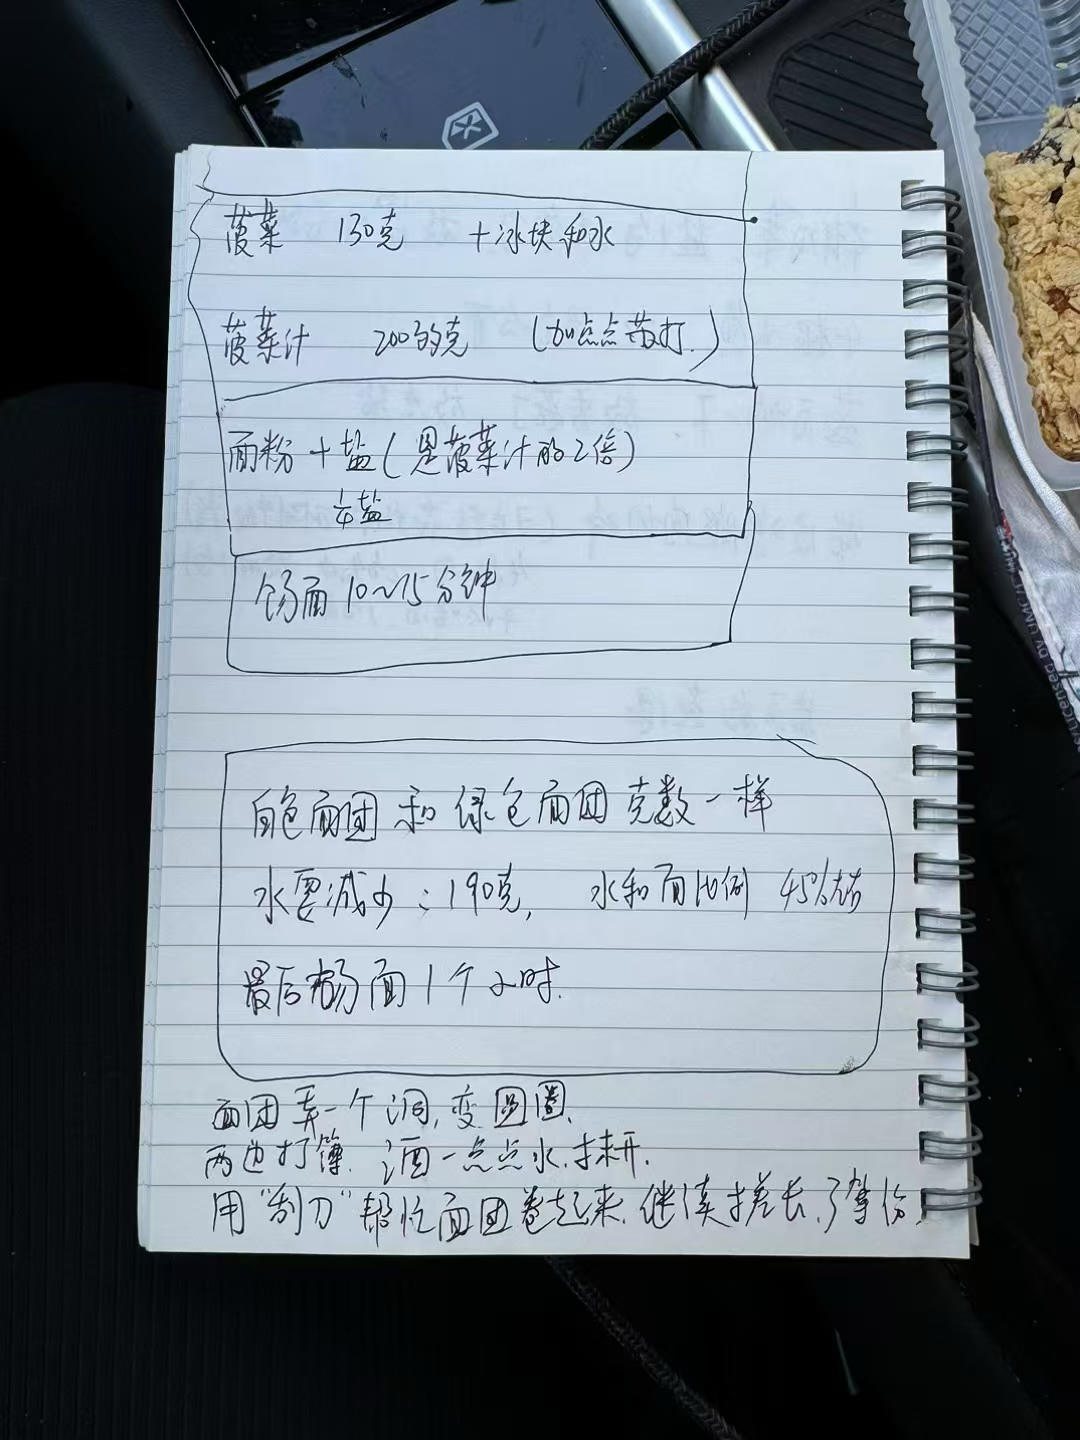 菠菜 130克 +冰块和水
菠菜汁 200多克 (加点点苏打.)
面粉+盐(是菠菜汁的2倍)
1/4盐
饧面10~15分钟
白色面团和绿色面团克数一样
水要减少:190克, 水和面比例 45%左右
最后饧面1个小时.
面团弄一个洞,变圆圈.
两边打薄. 洒一点点水.揉开.
用"刮刀"帮忙面团卷起来.继续搓长.3等份.
Licensed by UMC